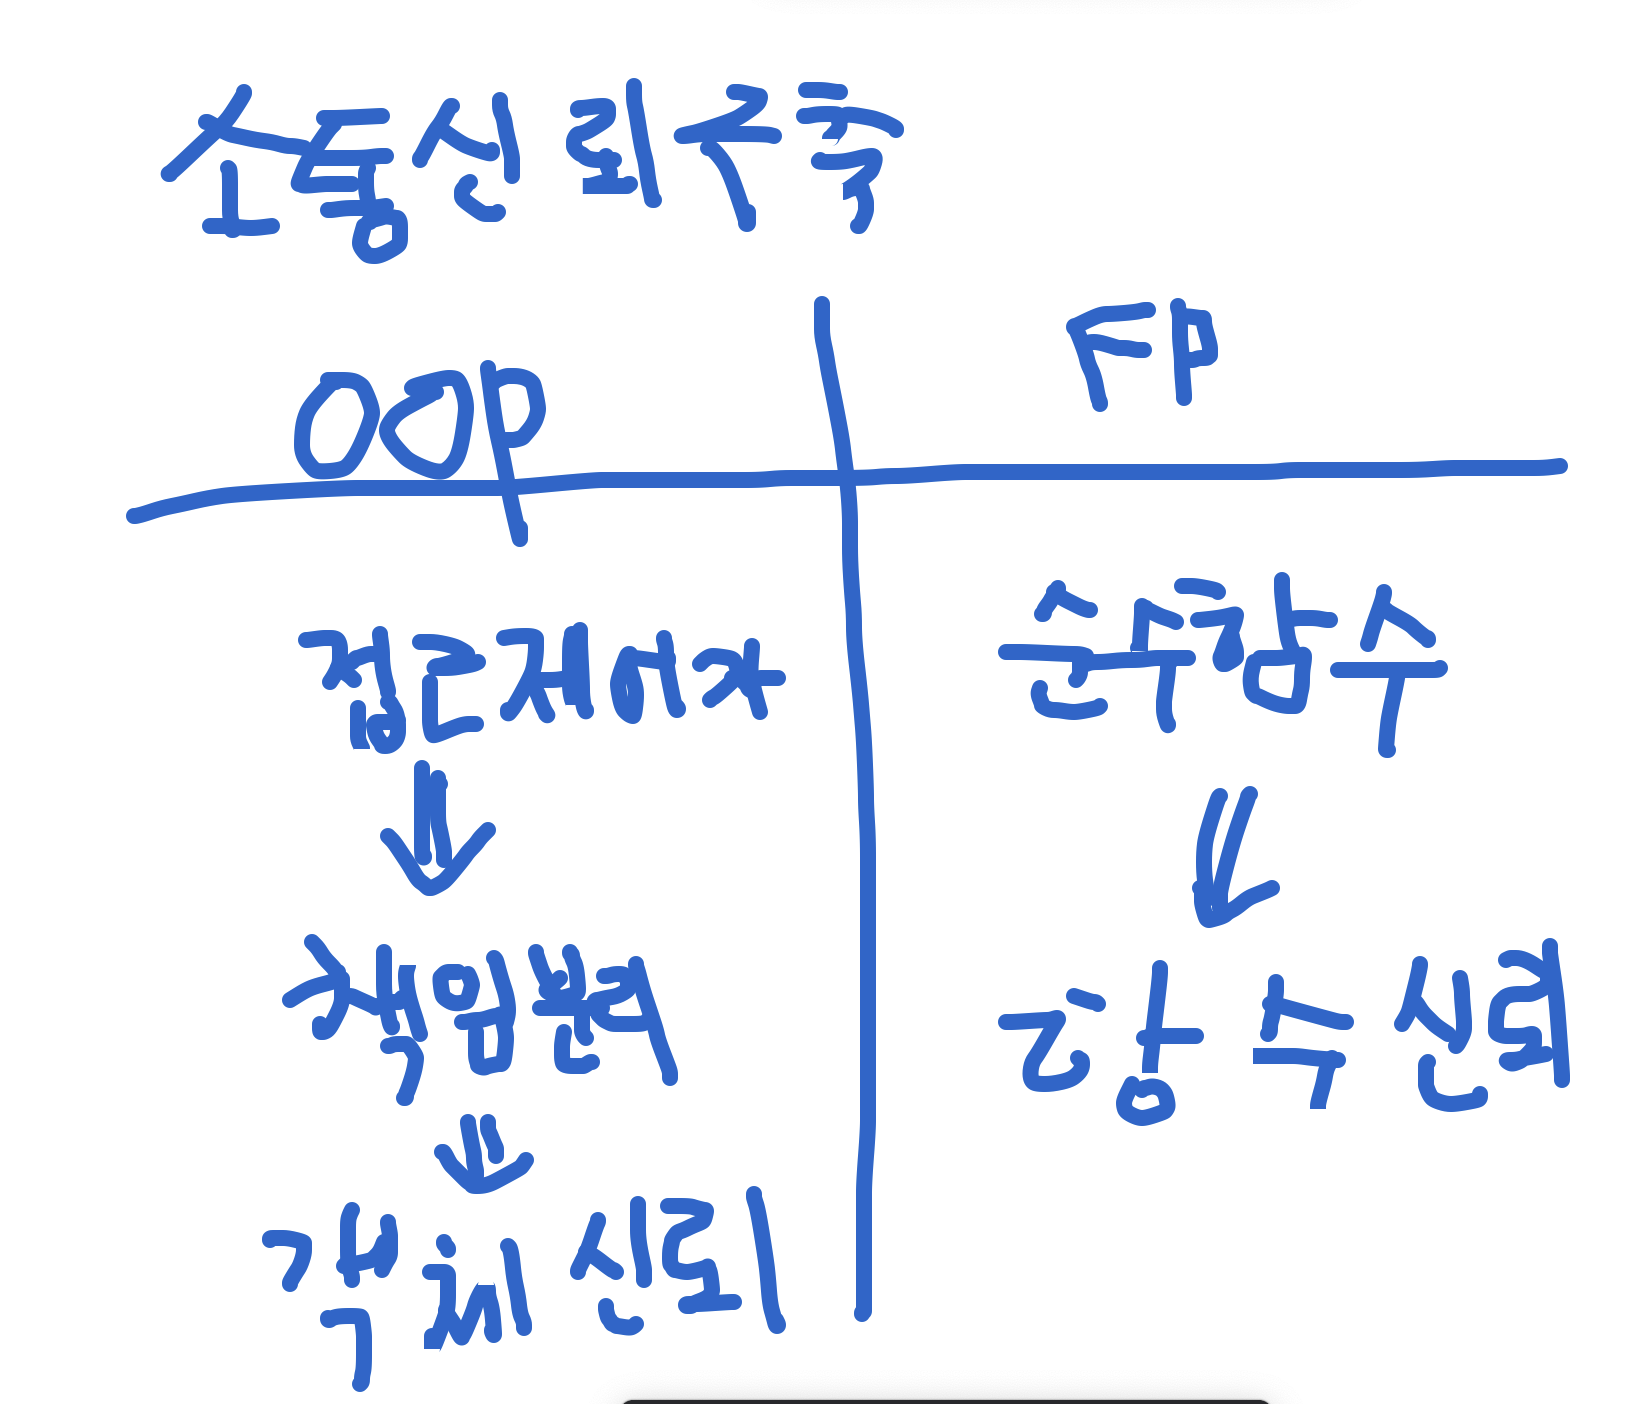 소통신뢰구축
OOP
FP
접근제어자
순수함수
책임분리
함수 신뢰
객체 신뢰